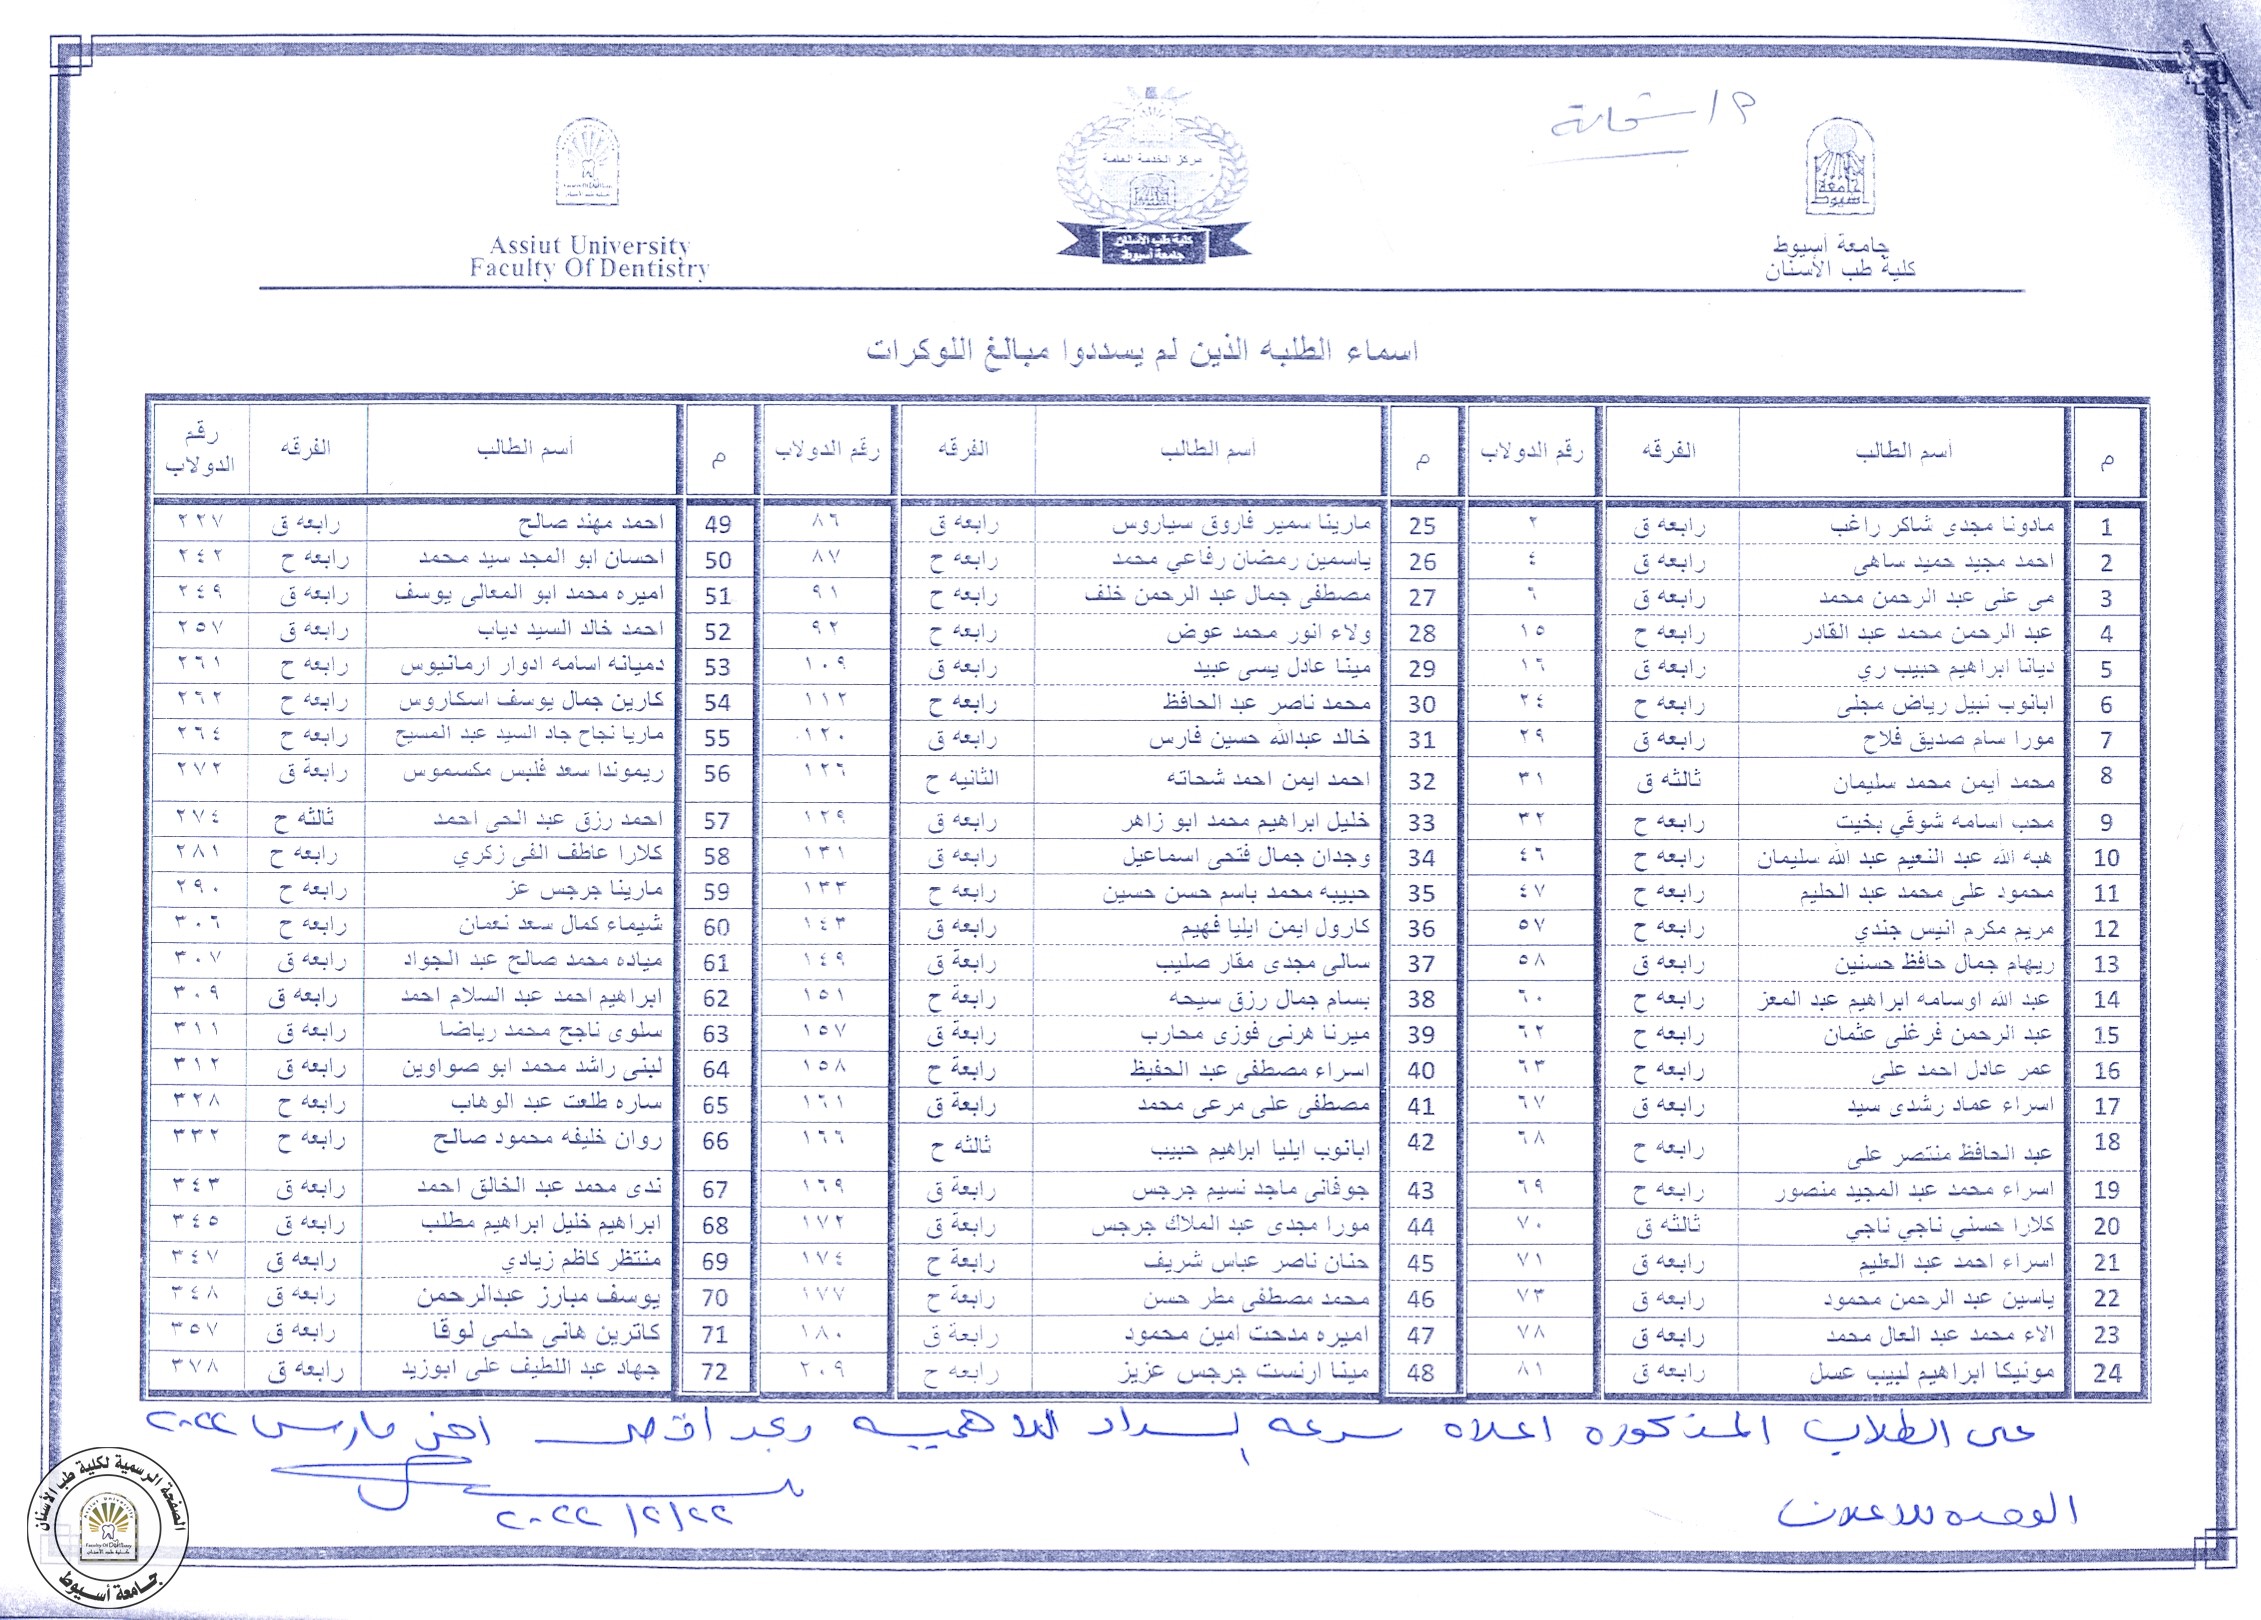 م / شحاته
جامعة أسيوط
كلية طب الأسنان
مركز الخدمة العامة
كلية طب الأسنان
جامعة أسيوط
Assiut University
Faculty Of Dentistry
اسماء الطلبه الذين لم يسددوا مبالغ اللوكرات
م أسم الطالب الفرقه رقم الدولاب م أسم الطالب الفرقه رقم الدولاب م أسم الطالب الفرقه رقم الدولاب
1 مادونا مجدى شاكر راغب رابعه ق ٢ 25 مارينا سمير فاروق سياروس رابعه ق ٨٦ 49 احمد مهند صالح رابعه ق ٢٢٧
2 احمد مجيد حميد ساهى رابعه ق ٤ 26 ياسمين رمضان رفاعي محمد رابعه ح ٨٧ 50 احسان ابو المجد سيد محمد رابعه ح ٢٤٢
3 مى على عبد الرحمن محمد رابعه ق ٦ 27 مصطفى جمال عبد الرحمن خلف رابعه ح ٩١ 51 اميره محمد ابو المعالى يوسف رابعه ق ٢٤٩
4 عبد الرحمن محمد عبد القادر رابعه ح ١٥ 28 ولاء انور محمد عوض رابعه ح ٩٢ 52 احمد خالد السيد دياب رابعه ق ٢٥٧
5 ديانا ابراهيم حبيب ري رابعه ق ١٦ 29 مينا عادل يسى عبيد رابعه ق ١٠٩ 53 دميانه اسامه ادوار ارمانيوس رابعه ح ٢٦١
6 ابانوب نبيل رياض مجلى رابعه ح ٢٤ 30 محمد ناصر عبد الحافظ رابعه ح ١١٢ 54 كارين جمال يوسف اسكاروس رابعه ح ٢٦٢
7 مورا سام صديق فلاح رابعه ق ٢٩ 31 خالد عبدالله حسين فارس رابعه ق ١٢٠ 55 ماريا نجاح جاد السيد عبد المسيح رابعه ح ٢٦٤
8 محمد أيمن محمد سليمان ثالثه ق ٣١ 32 احمد ايمن احمد شحاته الثانيه ح ١٢٦ 56 ريموندا سعد فلبس مكسموس رابعة ق ٢٧٢
9 محب اسامه شوقي بخيت رابعه ح ٣٢ 33 خليل ابراهيم محمد ابو زاهر رابعه ق ١٢٩ 57 احمد رزق عبد الحى احمد ثالثه ح ٢٧٤
10 هبه الله عبد النعيم عبد الله سليمان رابعه ح ٤٦ 34 وجدان جمال فتحى اسماعيل رابعه ق ١٣١ 58 كلارا عاطف الفى زكري رابعه ح ٢٨١
11 محمود على محمد عبد الحليم رابعه ح ٤٧ 35 حبيبه محمد باسم حسن حسين رابعه ح ١٣٣ 59 مارينا جرجس عز رابعه ح ٢٩٠
12 مريم مكرم انيس جندي رابعه ح ٥٧ 36 كارول ايمن ايليا فهيم رابعه ق ١٤٣ 60 شيماء كمال سعد نعمان رابعه ح ٣٠٦
13 ريهام جمال حافظ حسنين رابعه ق ٥٨ 37 سالى مجدى مقار صليب رابعة ق ١٤٩ 61 مياده محمد صالح عبد الجواد رابعه ق ٣٠٧
14 عبد الله اوسامه ابراهيم عبد المعز رابعه ح ٦٠ 38 بسام جمال رزق سيحه رابعة ح ١٥١ 62 ابراهيم احمد عبد السلام احمد رابعه ق ٣٠٩
15 عبد الرحمن فرغلى عثمان رابعه ح ٦٢ 39 ميرنا هرنى فوزى محارب رابعة ق ١٥٧ 63 سلوى ناجح محمد رياضا رابعه ق ٣١١
16 عمر عادل احمد على رابعه ح ٦٣ 40 اسراء مصطفى عبد الحفيظ رابعة ح ١٥٨ 64 لبنى راشد محمد ابو صواوين رابعه ق ٣١٢
17 اسراء عماد رشدى سيد رابعه ق ٦٧ 41 مصطفى على مرعى محمد رابعة ق ١٦١ 65 ساره طلعت عبد الوهاب رابعه ح ٣٢٨
18 عبد الحافظ منتصر على رابعه ح ٦٨ 42 ابانوب ايليا ابراهيم حبيب ثالثه ح ١٦٦ 66 روان خليفه محمود صالح رابعه ح ٣٣٢
19 اسراء محمد عبد المجيد منصور رابعه ح ٦٩ 43 جوفانى ماجد نسيم جرجس رابعة ق ١٦٩ 67 ندى محمد عبد الخالق احمد رابعه ق ٣٤٣
20 كلارا حسني ناجي ناجي ثالثه ق ٧٠ 44 مورا مجدى عبد الملاك جرجس رابعة ق ١٧٢ 68 ابراهيم خليل ابراهيم مطلب رابعه ق ٣٤٥
21 اسراء احمد عبد العليم رابعه ق ٧١ 45 حنان ناصر عباس شريف رابعة ح ١٧٤ 69 منتظر كاظم زيادي رابعه ق ٣٤٧
22 ياسين عبد الرحمن محمود رابعه ق ٧٣ 46 محمد مصطفى مطر حسن رابعة ح ١٧٧ 70 يوسف مبارز عبدالرحمن رابعه ق ٣٤٨
23 الاء محمد عبد العال محمد رابعه ق ٧٨ 47 اميره مدحت امين محمود رابعة ق ١٨٠ 71 كاترين هانى حلمى لوقا رابعه ق ٣٥٧
24 مونيكا ابراهيم لبيب عسل رابعه ق ٨١ 48 مينا ارنست جرجس عزيز رابعه ح ٢٠٩ 72 جهاد عبد اللطيف على ابوزيد رابعه ق ٣٧٨
على الطلاب المذكوره اعلاه سرعه السداد للاهميه وبحد اقصى اخر مارس ٢٠٢٢
٢٠٢٢/٢/٢٢
للاعلان
الصفحة الرسمية لكلية طب الأسنان
جامعة أسيوط